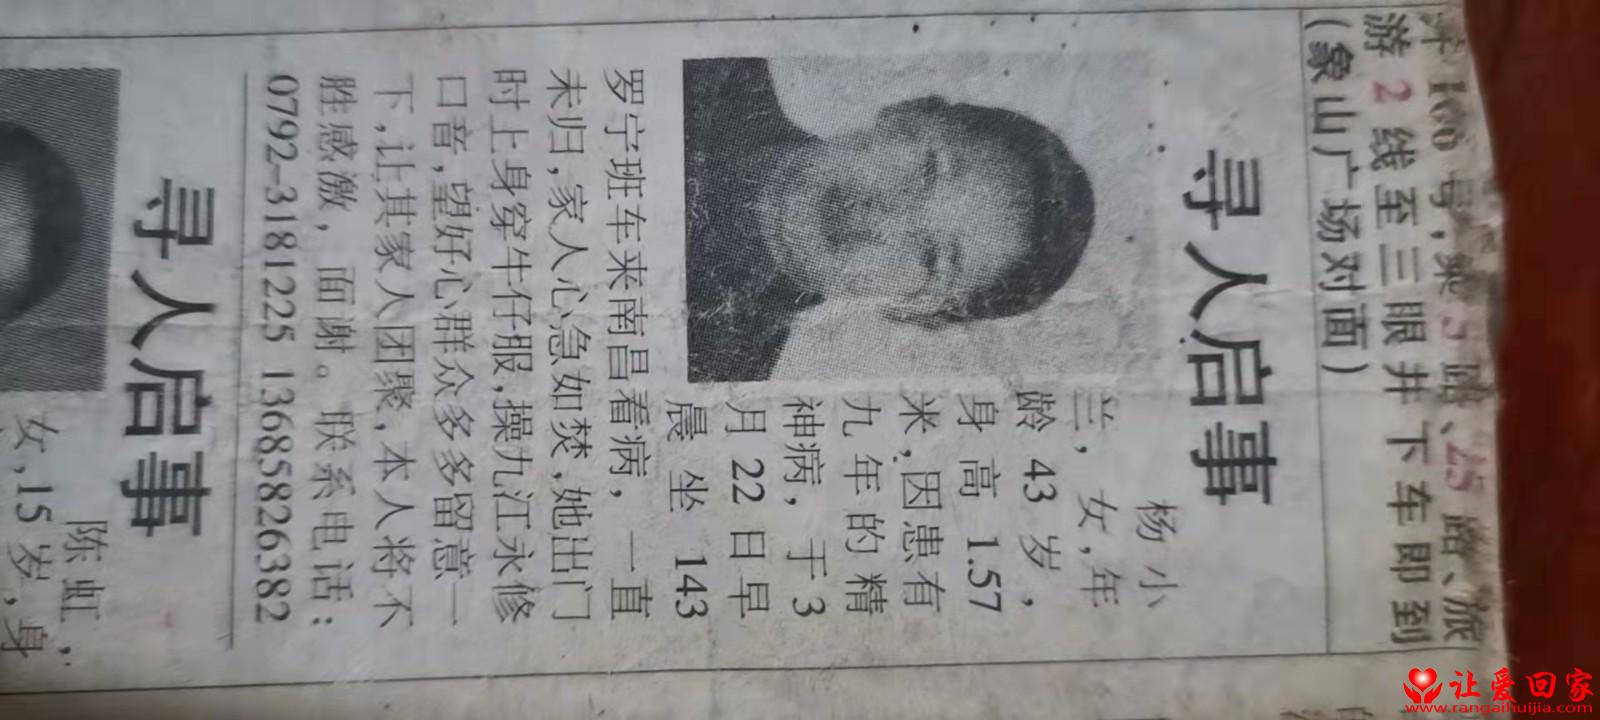 号,乘5路、25路、旅
游2线至三眼井下车即到
(象山广场对面)
寻人启事
杨小
兰,女,年
龄43岁,
身高1.57
米,因患有
九年的精
神病,于3
月22日早
晨坐143
罗宁班车来南昌看病,一直
未归,家人心急如焚,她出门
时上身穿牛仔服,操九江永修
口音,望好心群众多多留意一
下,让其家人团聚,本人将不
胜感激,面谢。联系电话:
0792-3181225 13685826382
寻人启事
陈虹,
女,15岁,身
让爱回家
www.rangaihuijia.com